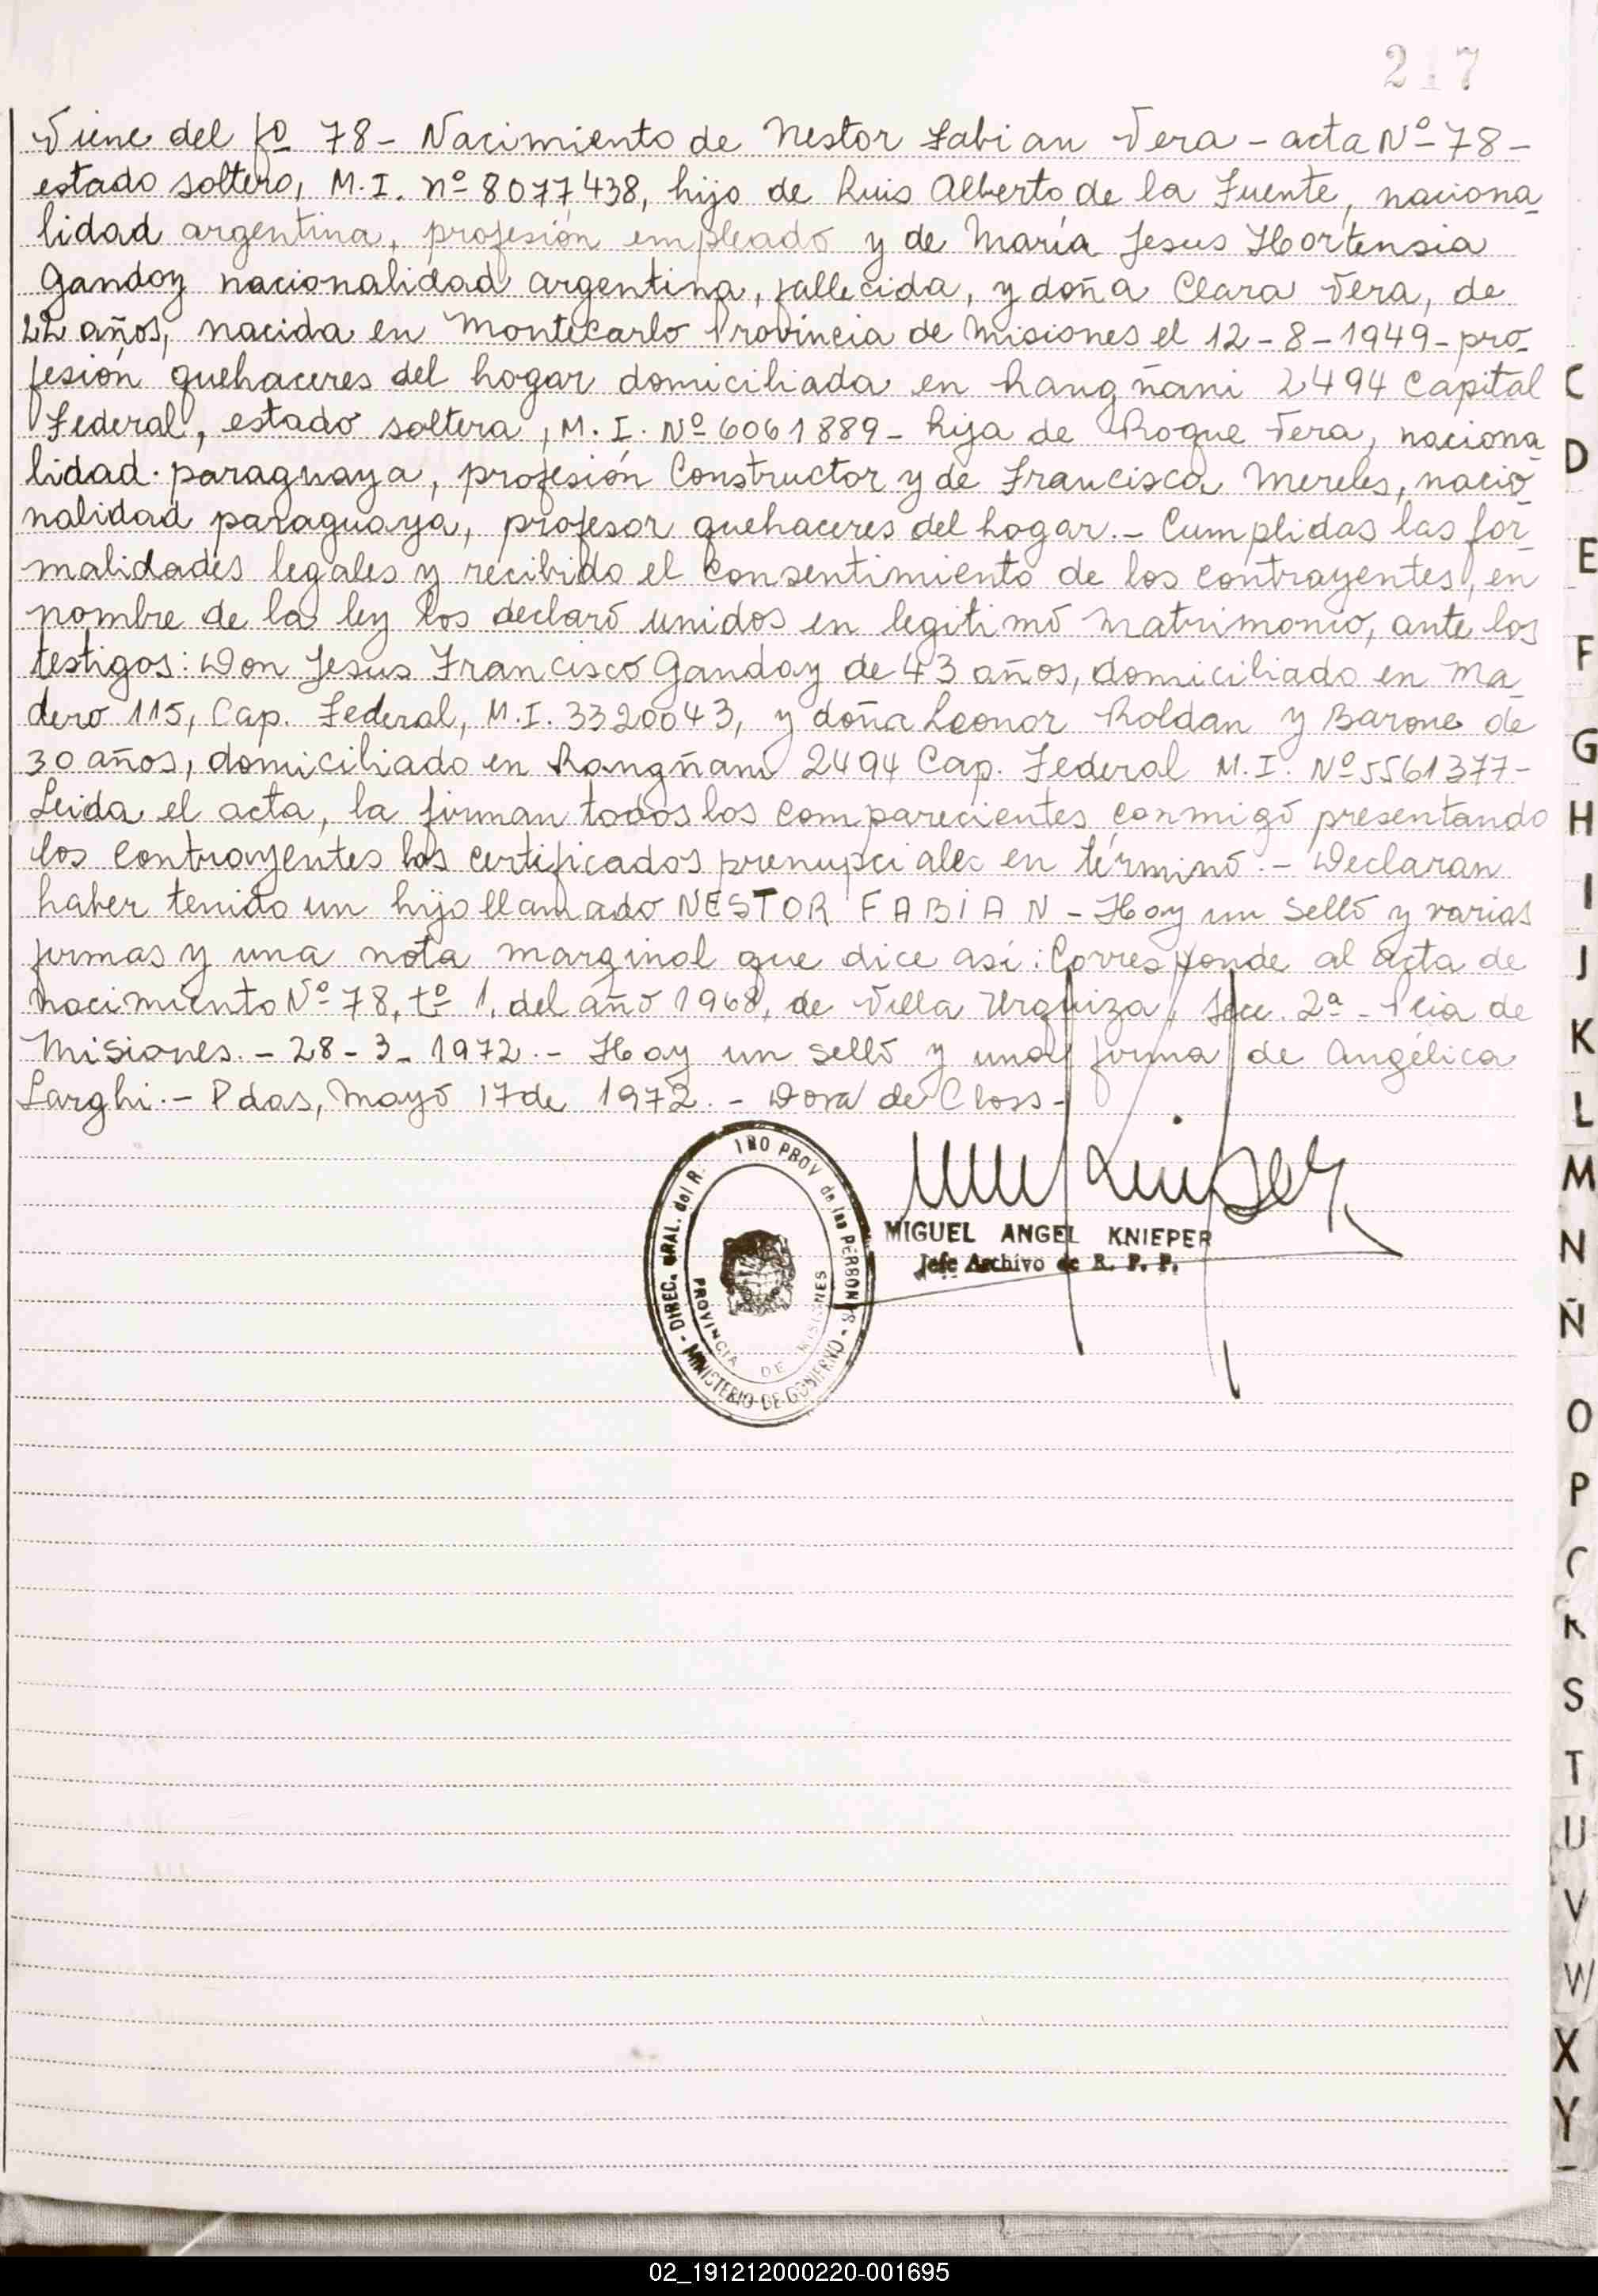 217
Viene del fº 78 - Nacimiento de Nestor Fabian Vera - acta Nº 78 -
estado soltero, M.I. nº 8077438, hijo de Luis Alberto de la Fuente, naciona
lidad argentina, profesión empleado y de María Jesus Hortensia
Gandoy nacionalidad argentina, fallecida, y doña Clara Vera, de
22 años, nacida en Montecarlo Provincia de Misiones el 12-8-1949- pro
fesión quehaceres del hogar domiciliada en Rangñani 2494 Capital
Federal, estado soltera, M.I. Nº 6061889- hija de Roque Vera, naciona
lidad paraguaya, profesión Constructor y de Francisca Mereles, nacio
nalidad paraguaya, profesor quehaceres del hogar.- Cumplidas las for
malidades legales y recibido el consentimiento de los contrayentes, en
nombre de la ley los declaró unidos en legitimo matrimonio, ante los
testigos: Don Jesus Francisco Gandoy de 43 años, domiciliado en Ma
dero 115, Cap. Federal, M.I. 3320043, y doña Leonor Roldan y Barone de
30 años, domiciliado en Rangñani 2494 Cap. Federal M.I. Nº 5561377-
Leida el acta, la firman todos los comparecientes conmigo presentando
los contrayentes los certificados prenupciales en término.- Declaran
haber tenido un hijo llamado NESTOR FABIAN - Hay un sello y varias
firmas y una nota marginal que dice así: Corresponde al acta de
nacimiento Nº 78, tº 1, del año 1968, de Villa Urquiza, Secc. 2ª - Pcia de
Misiones. - 28-3-1972.- Hay un sello y una firma de Angélica
Larghi.- Pdas, Mayo 17 de 1972.- Dora de Closs-
DIREC. GRAL. del R. PROV de las PERSONAS - MINISTERIO DE GOBIERNO -
PROVINCIA DE MISIONES
MIGUEL ANGEL KNIEPER
Jefe Archivo de R. P. P.
C
D
E
F
G
H
I
J
K
L
M
N
Ñ
O
P
R
S
T
U
V
W
X
Y
02_191212000220-001695